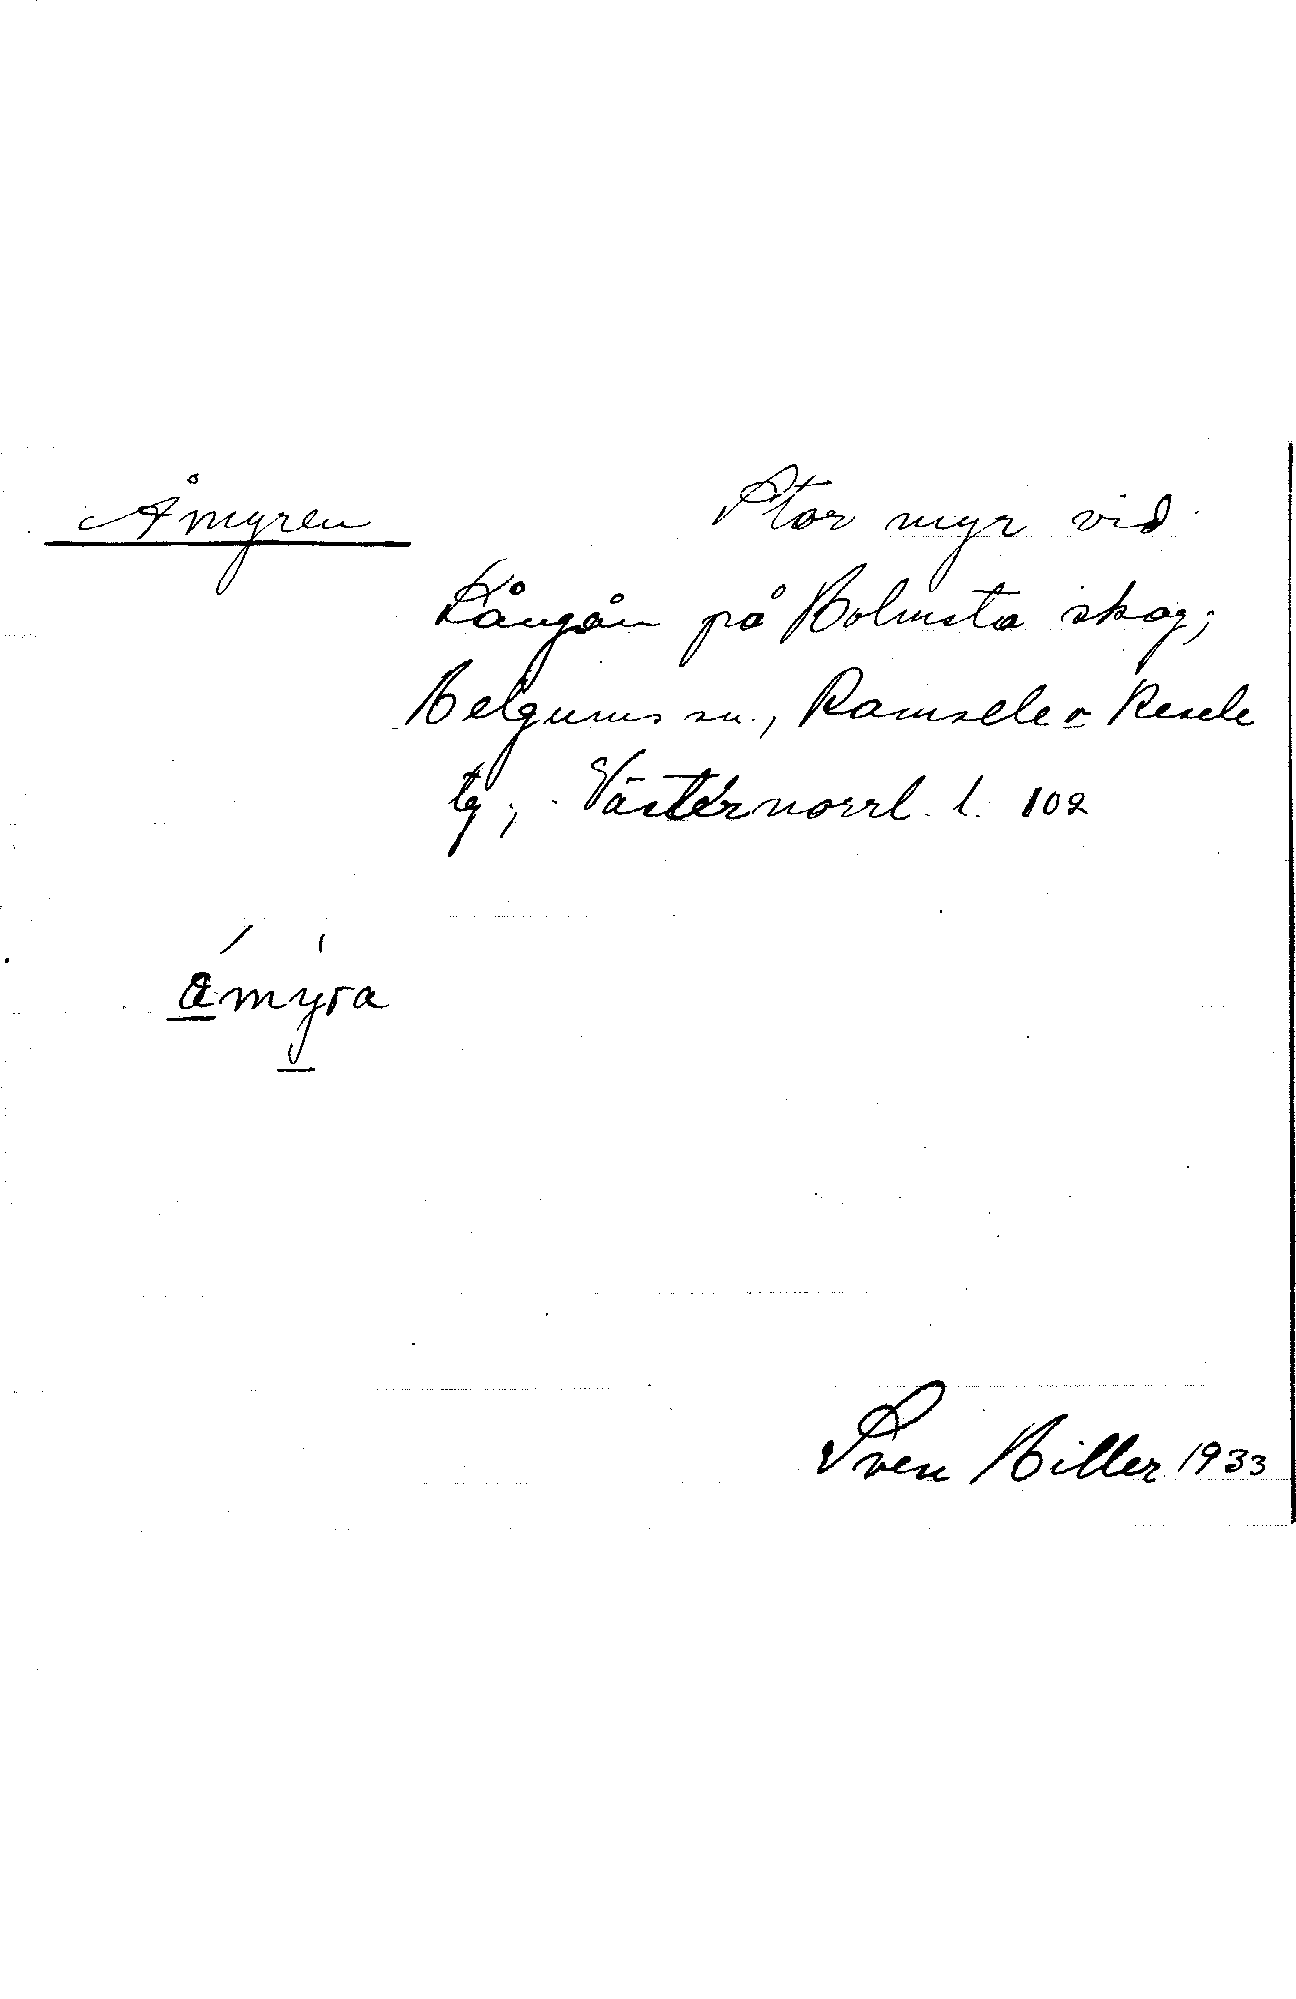 Åmyren Stor myr vid
Långån på Holmsta skog;
Helgums sn., Ramsele o Resele
tg; Västernorrl. l. 102
åmyra
Sven Hiller 1933